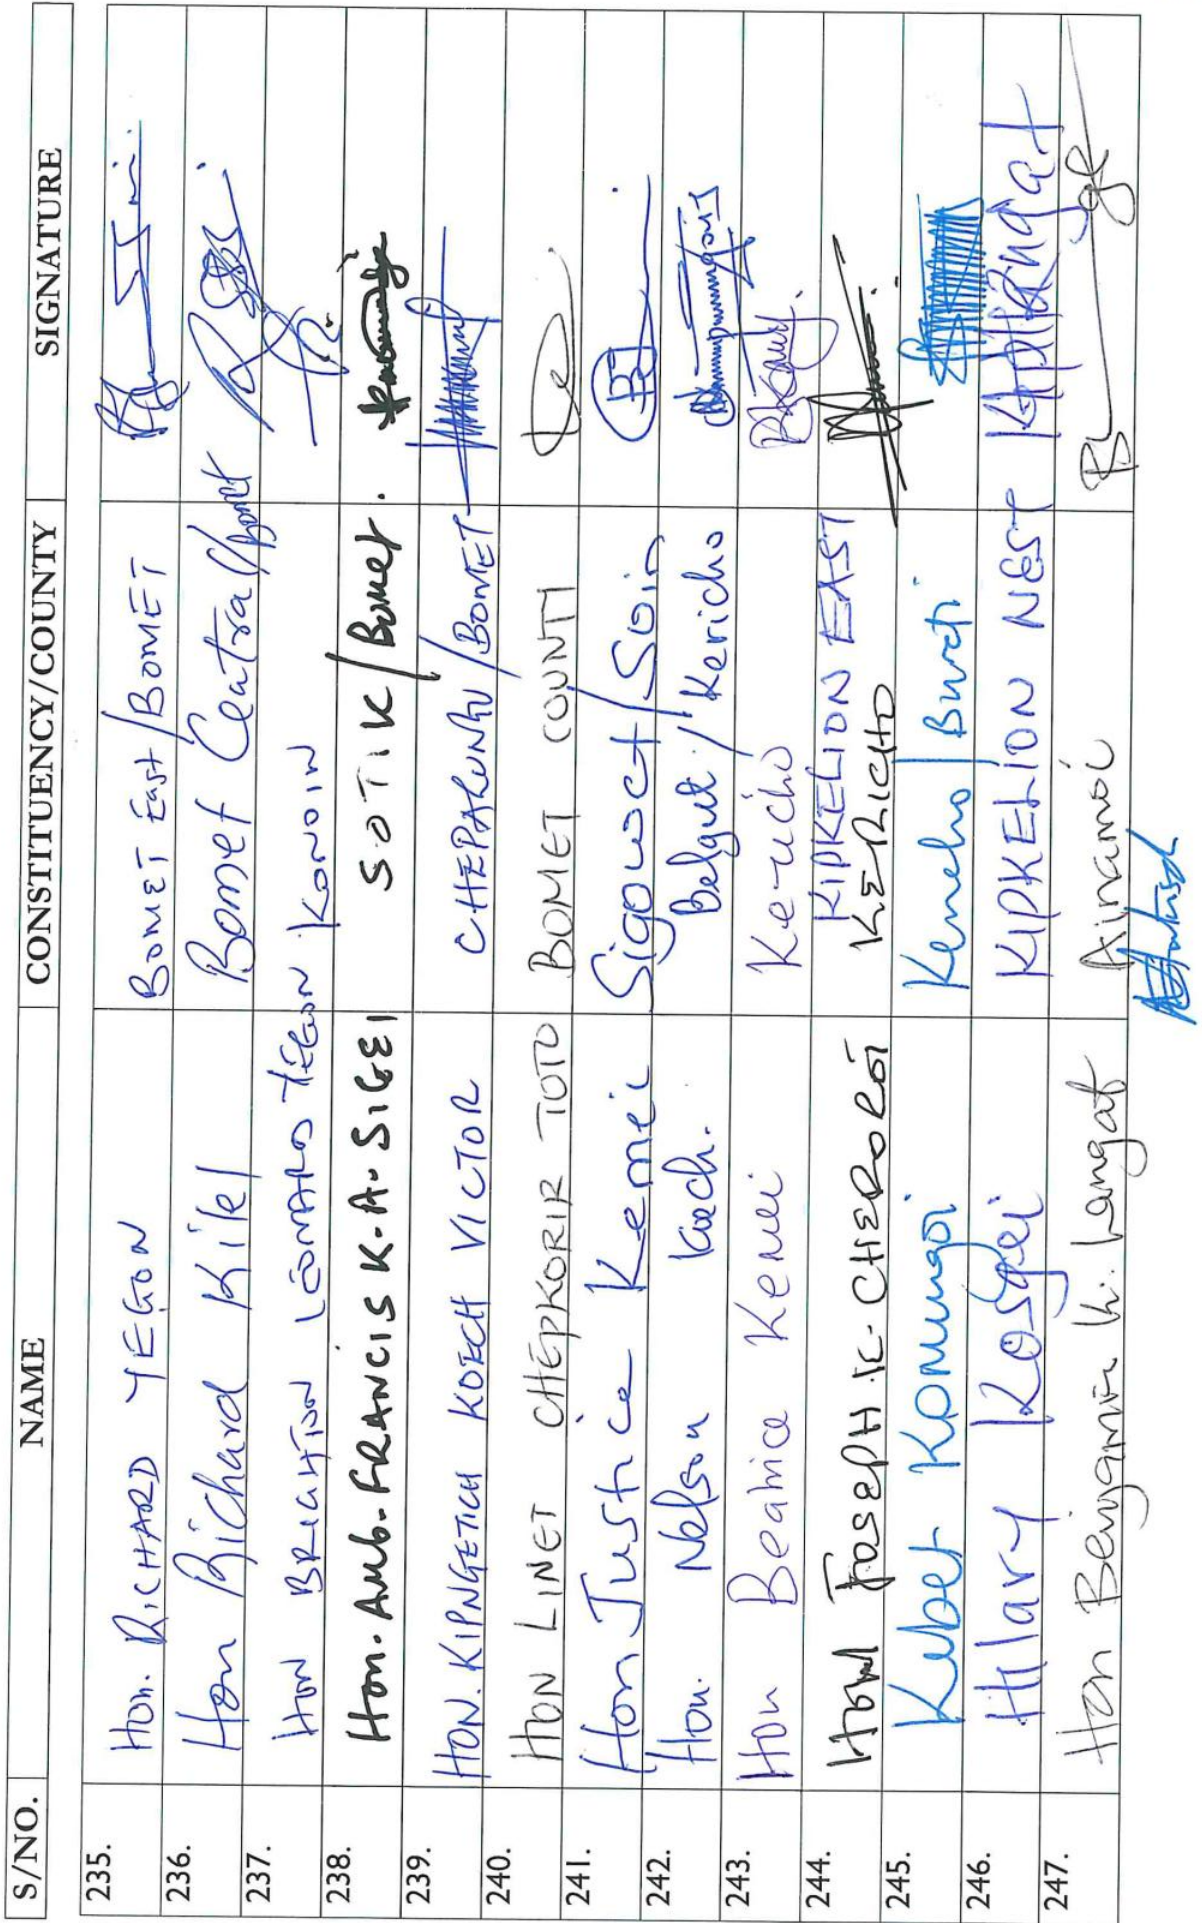 S/NO. NAME CONSTITUENCY/COUNTY SIGNATURE
235. Hon. RICHARD YEGON BOMET East/BOMET
236. Hon Richard Kilel Bomet Central/Bomet
237. HON BRIGHTON LEONARD YEGON KONOIN
238. Hon. Amb. FRANCIS K. A. SIGEI SOTIK/Bomet.
239. HON. KIPNGETICH KOECH VICTOR CHEPALUNGU/BOMET
240. HON LINET CHEPKORIR TOTO BOMET COUNTY
241. Hon Justice Kemei Sigowet/Soin
242. Hon. Nelson Koech. Belgut/Kericho
243. Hon Beatrice Kemei Kericho
244. HON JOSEPH K. CHEROROT KIPKELION EAST
KERICHO
245. Kibet Komungoi
246. Hilary Kosgei KIPKELION WEST
247. Hon Benjamin K. Langat Ainamoi